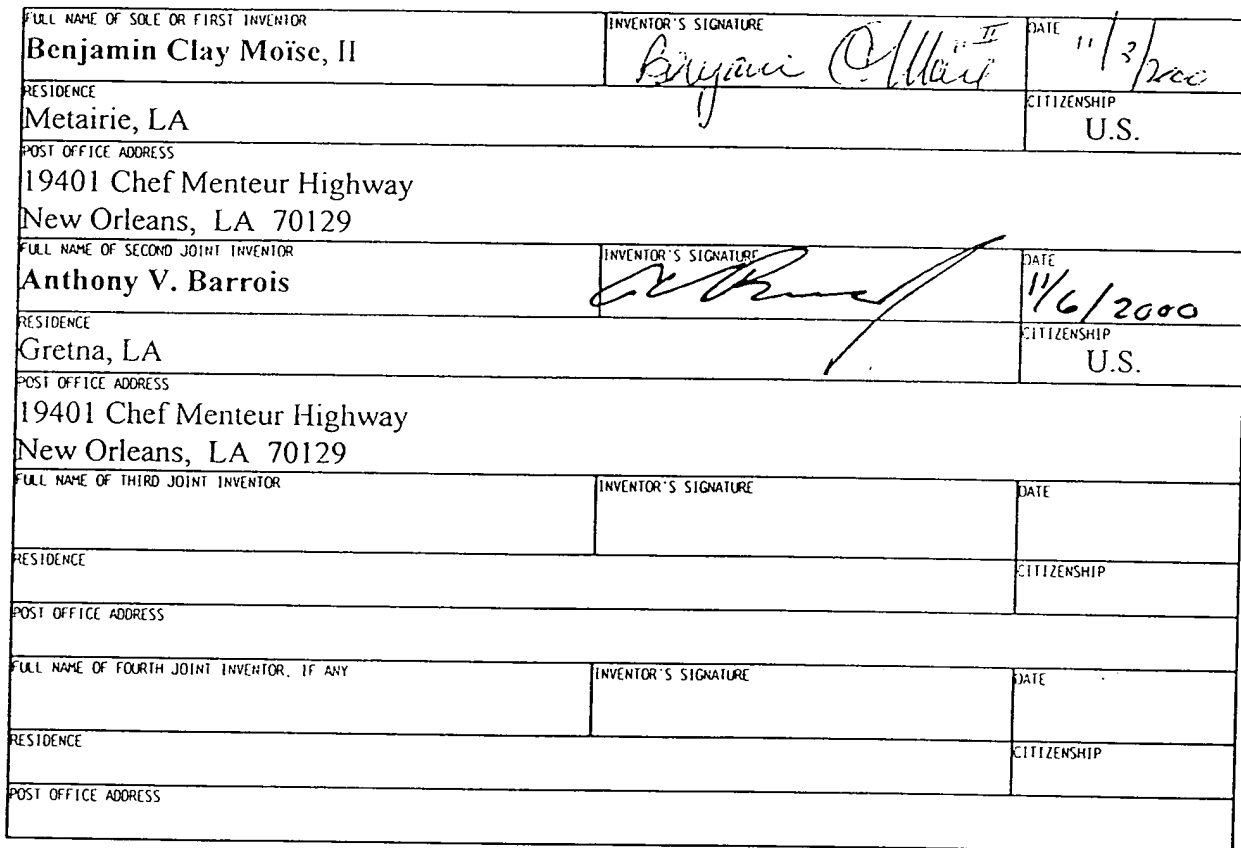 FULL NAME OF SOLE OR FIRST INVENTOR INVENTOR'S SIGNATURE DATE
Benjamin Clay Moïse, II Benjamin C. Moïse II 11/3/2000
RESIDENCE CITIZENSHIP
Metairie, LA U.S.
POST OFFICE ADDRESS
19401 Chef Menteur Highway
New Orleans, LA 70129
FULL NAME OF SECOND JOINT INVENTOR INVENTOR'S SIGNATURE DATE
Anthony V. Barrois 11/6/2000
RESIDENCE CITIZENSHIP
Gretna, LA U.S.
POST OFFICE ADDRESS
19401 Chef Menteur Highway
New Orleans, LA 70129
FULL NAME OF THIRD JOINT INVENTOR INVENTOR'S SIGNATURE DATE
RESIDENCE CITIZENSHIP
POST OFFICE ADDRESS
FULL NAME OF FOURTH JOINT INVENTOR, IF ANY INVENTOR'S SIGNATURE DATE
RESIDENCE CITIZENSHIP
POST OFFICE ADDRESS